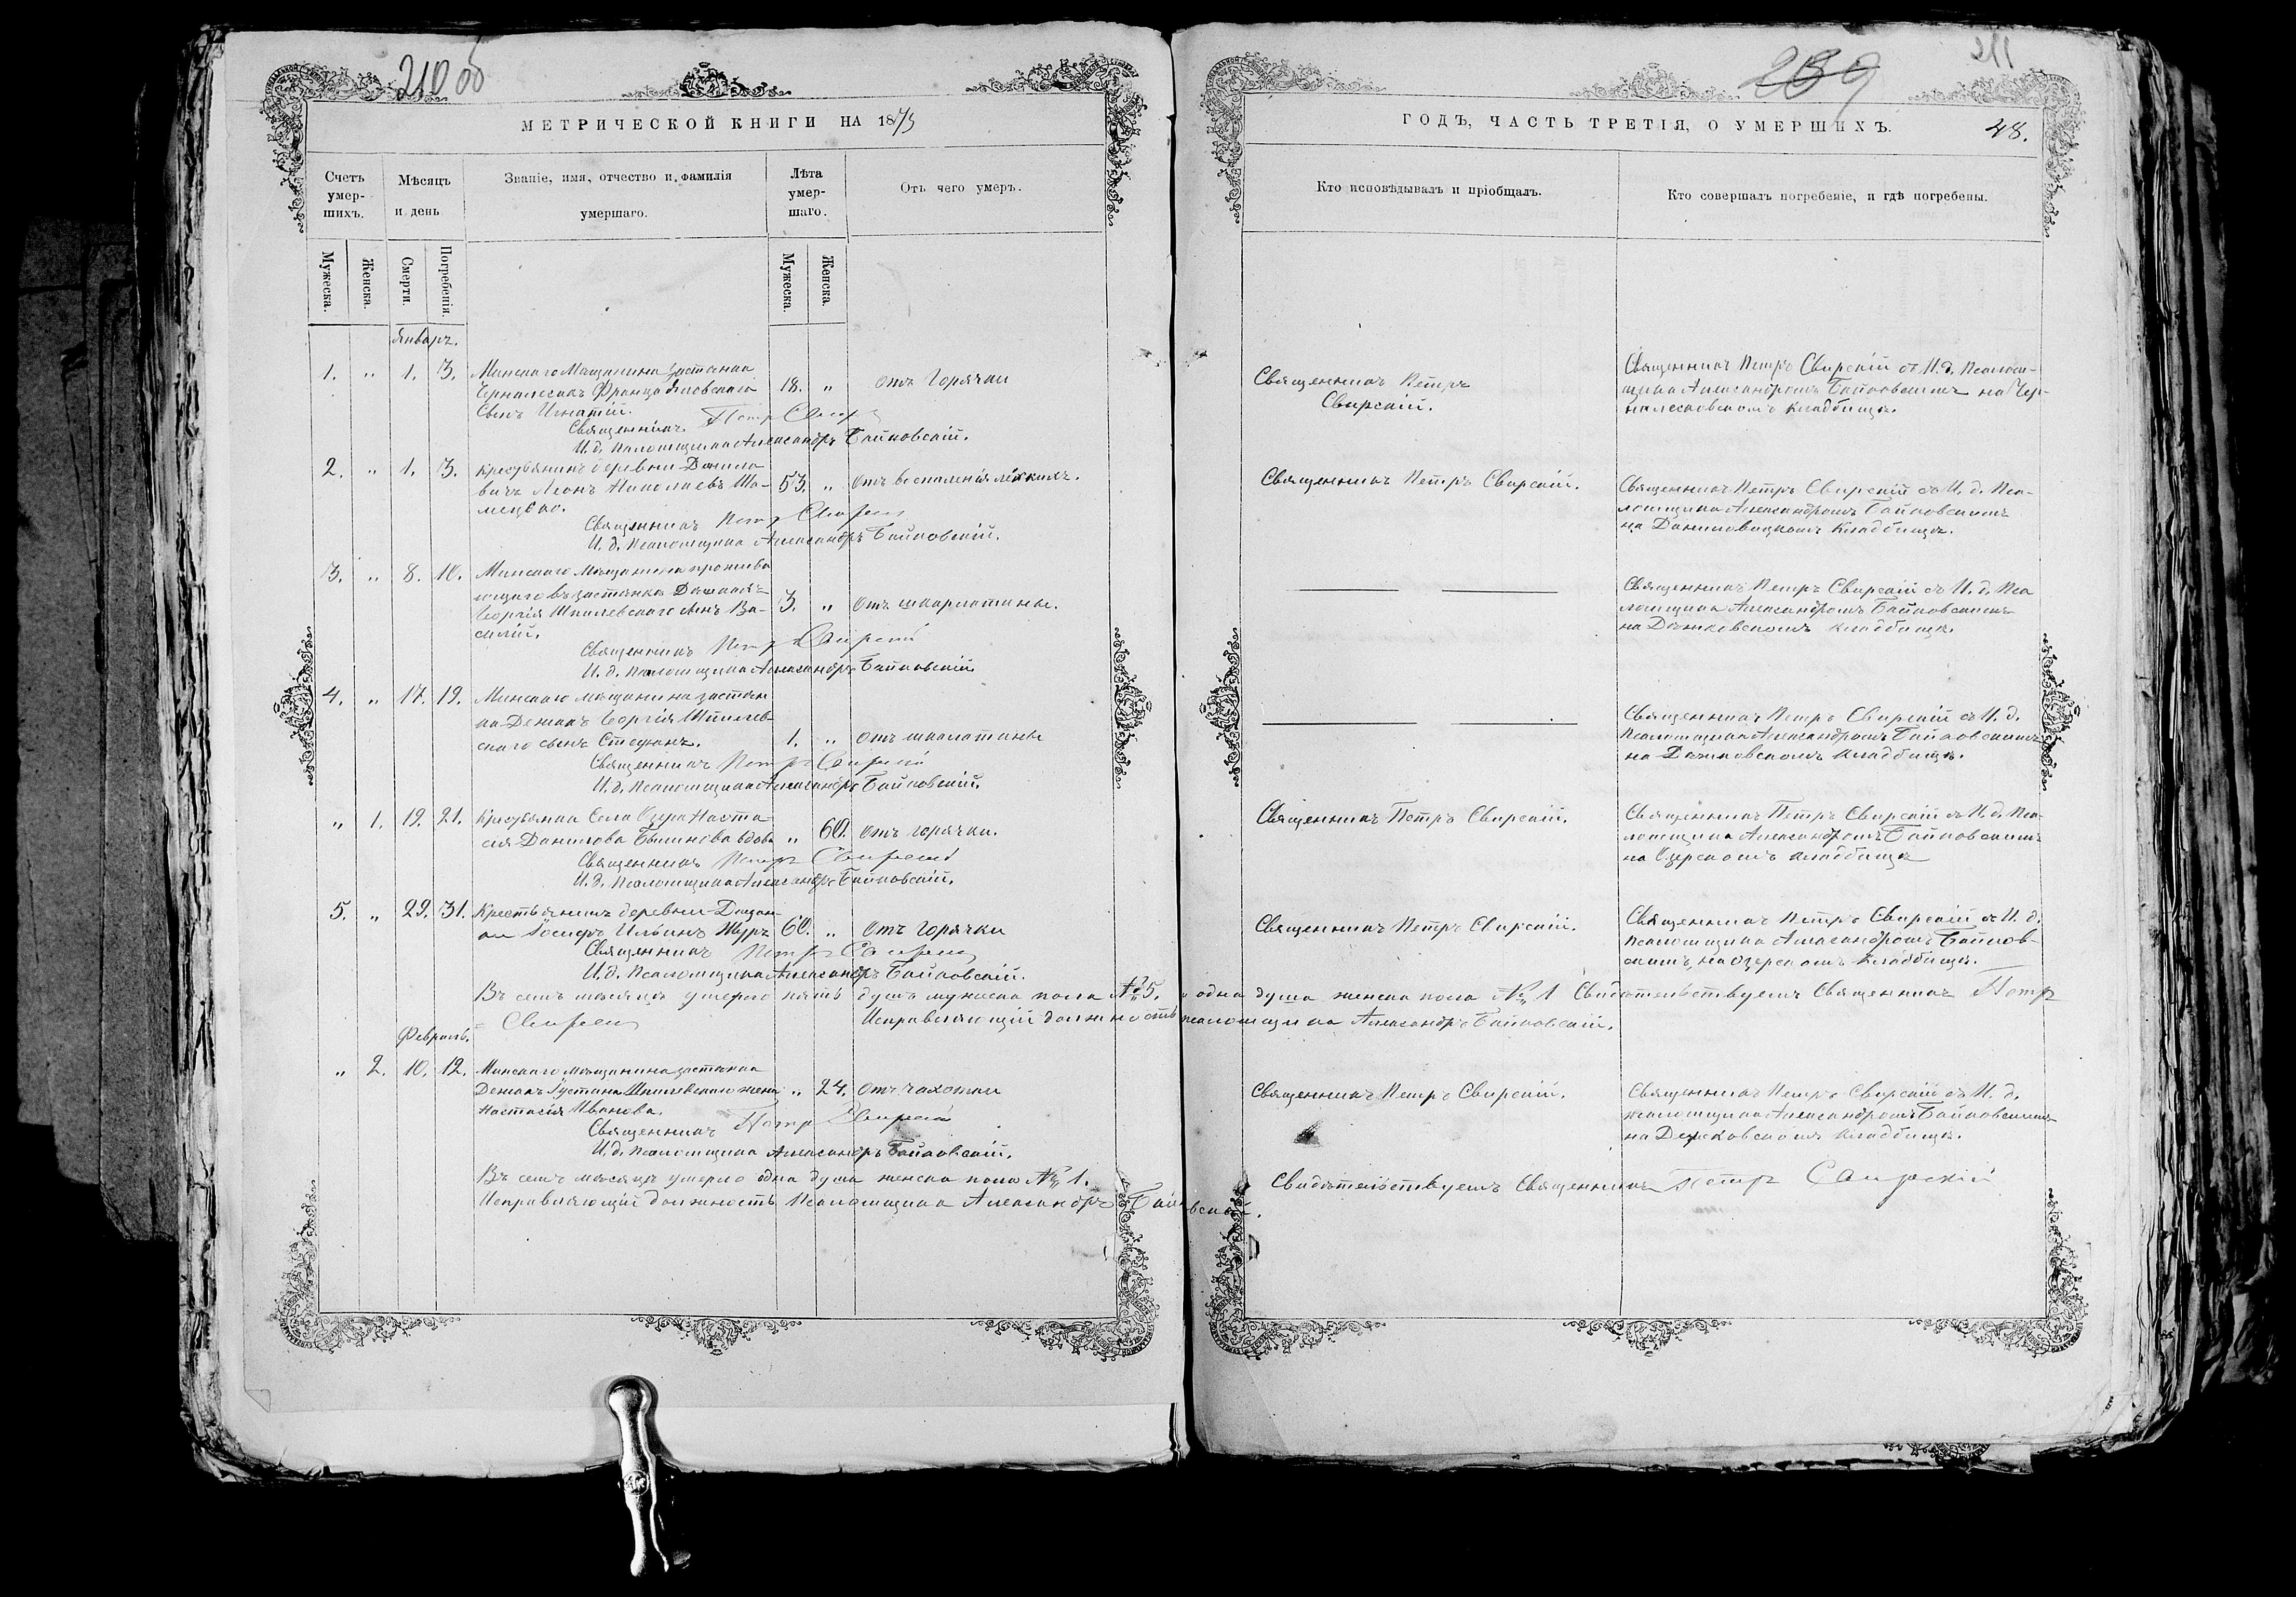 210 об
МЕТРИЧЕСКОЙ КНИГИ НА 1875
Счетъ умер-шихъ.
Мѣсяцъ и день
Званіе, имя, отчество и фамилія умершаго.
Лѣта умер-шаго.
Отъ чего умеръ.
Мужеска.
Женска.
Смерти.
Погребенія.
Мужеска.
Женска.
Январь.
1. „ 1. 3. Минскаго Мѣщанина застѣнка
Чернолесокъ Франца 18. „ отъ Горячки
Сынъ Игнатій.
Священникъ Петръ Свирскій
И. д. Псаломщика Александръ Байковскій.
2. „ 1. 3. Крестьянинъ деревни Данило-
вичъ Леонъ Николаевъ Ша- 53. „ отъ воспаленія легкихъ.
Священникъ Петръ Свирскій
И. д. Псаломщика Александръ Байковскій.
3. „ 8. 10. Минскаго мѣщанина прожива
ющаго въ застѣнкѣ
Георгія Шпилевскаго сынъ Ва- 3. „ отъ шкарлатины.
силій.
Священникъ Петръ Свирскій
И. д. Псаломщика Александръ Байковскій
4. „ 17. 19. Минскаго мѣщанина застѣн
ка Георгія Шпилев-
скаго сынъ Стефанъ. 1. „ отъ шкалатины
Священникъ Петръ Свирскій
И. д. Псаломщика Александръ Байковскій.
„ 1. 19. 21. Крестьянка Села Озера Наста-
сія Данилова вдова „ 60. отъ горячки.
Священникъ Петръ Свирскій
И. д. Псаломщика Александръ Байковскій.
5. „ 29. 31. Крестьянинъ деревни
Іосифъ Ильинъ Журъ 60. „ отъ Горячки
Священникъ Петръ Свирскій
И. д. Псаломщика Александръ Байковскій.
Въ семъ мѣсяцѣ умерло пять душъ мужеска пола № 5. и одна душа женска пола № 1 Свидѣтельствуемъ Священникъ Петръ
Свирскій Исправляющій должность псаломщика Александръ Байковскій.
Февраль.
„ 2. 10. 12. Минскаго мѣщанина застѣнка
Шпилевскаго жена „ 24. отъ чахотки
Настасія Иванова.
Священникъ Петръ Свирскій
И. д. Псаломщика Александръ Байковскій.
Въ семъ мѣсяцѣ умерло одна душа женска пола № 1. Свидѣтельствуемъ Священникъ Петръ Свирскій
Исправляющій должность Псаломщика Александръ Байковскій.
239
211
ГОДЪ, ЧАСТЬ ТРЕТІЯ, О УМЕРШИХЪ.
48.
Кто исповѣдывалъ и пріобщалъ.
Кто совершалъ погребеніе, и гдѣ погребены.
Священникъ Петръ
Свирскій.
Священникъ Петръ Свирскій съ И. д. Псалом-
щика Александромъ Байковскимъ на Чер-
нолесковскомъ кладбищѣ.
Священникъ Петръ Свирскій.
Священникъ Петръ Свирскій съ И. д. Пса-
ломщика Александромъ Байковскимъ
на Даниловицкомъ Кладбищѣ.
Священникъ Петръ Свирскій съ И. д. Пса
ломщика Александромъ Байковскимъ
на кладбищѣ.
Священникъ Петръ Свирскій съ И. д.
Псаломщика Александромъ Байковскимъ
на кладбищѣ.
Священникъ Петръ Свирскій.
Священникъ Петръ Свирскій съ И. д. Пса-
ломщика Александромъ Байковскимъ
на Озерскомъ кладбищѣ
Священникъ Петръ Свирскій.
Священникъ Петръ Свирскій съ И. д.
псаломщика Александромъ Байков-
скимъ, на Озерскомъ кладбищѣ.
Священникъ Петръ Свирскій.
Священникъ Петръ Свирскій съ И. д.
псаломщика Александромъ Байковскимъ
на кладбищѣ.